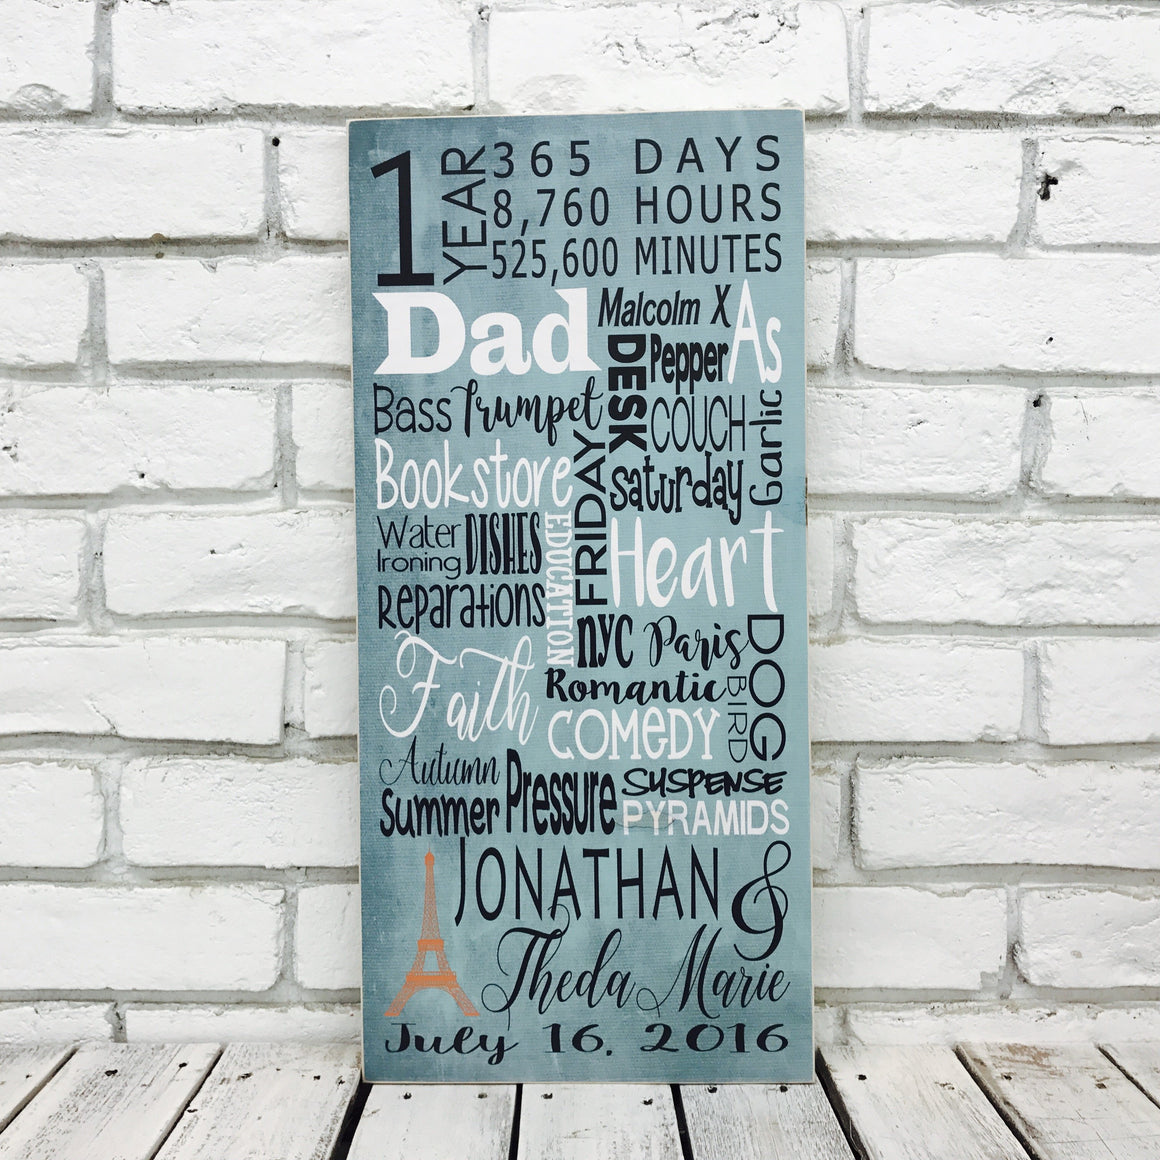 1 YEAR 365 DAYS
8,760 HOURS
525,600 MINUTES
Dad
Malcolm X
As
DESK
Pepper
Bass Trumpet
COUCH
Garlic
Bookstore
FRIDAY
saturday
Water
Ironing
DISHES
EDUCATION
Heart
Reparations
nyc Paris
DOG
Faith
Romantic
BIRD
COMEDY
Autumn
Summer
Pressure
SUSPENSE
PYRAMIDS
JONATHAN &
Theda Marie
July 16, 2016